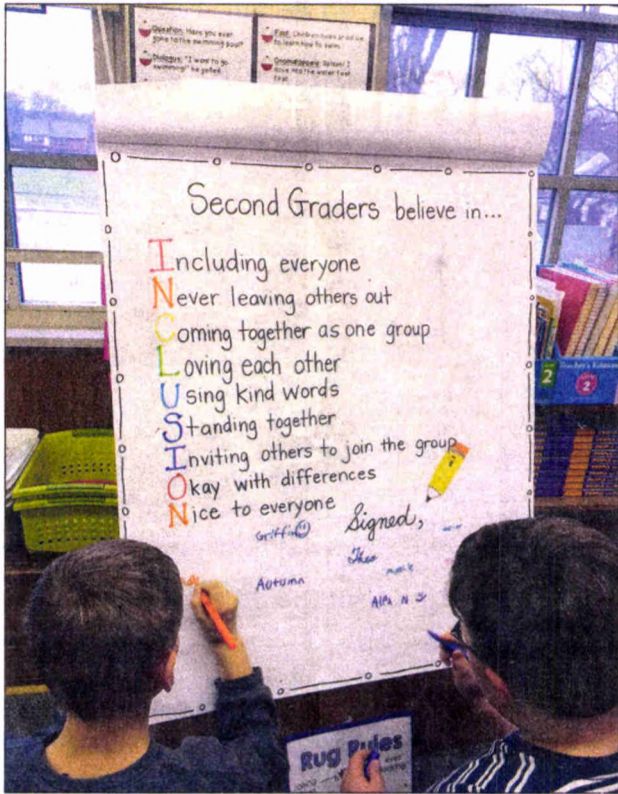 Question: Have you ever
gone to the swimming pool?
Dialogue: "I want to go
swimming!" he yelled.
Fact: Children
to learn how to swim.
Onomatopoeia: Splash! I
dive into the water feet
first.
Second Graders believe in...
Including everyone
Never leaving others out
Coming together as one group
Loving each other
Using kind words
Standing together
Inviting others to join the group
Okay with differences
Nice to everyone
Signed,
Griffin
Theo
Autumn
2
Teacher's
2
Rug Rules